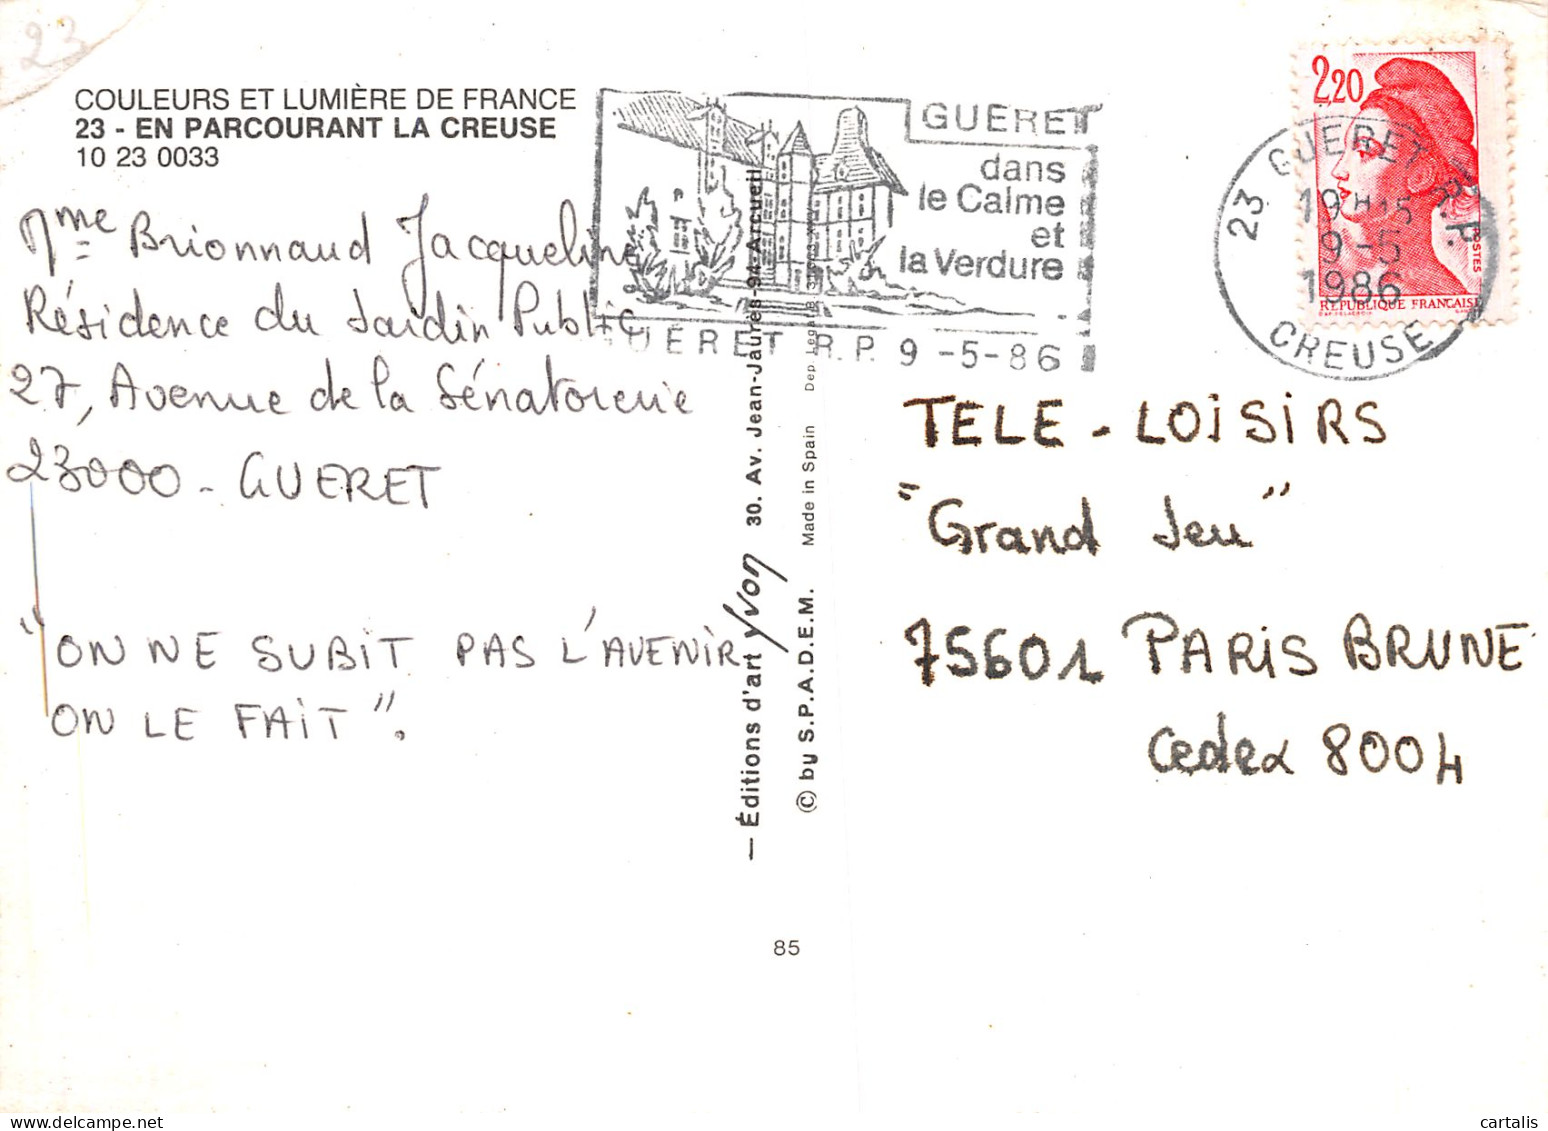 23
COULEURS ET LUMIÈRE DE FRANCE
23 - EN PARCOURANT LA CREUSE
10 23 0033
Mme Brionnaud Jacqueline
Résidence du Jardin Public
27, Avenue de la Sénatorerie
23000 - GUERET
"ON NE SUBIT PAS L'AVENIR
ON LE FAIT".
GUERET
dans
le Calme
et
la Verdure
GUÉRET R.P. 9 -5-86
2,20
POSTES
REPUBLIQUE FRANCAISE
23 GUERET R.P.
19H15
9-5
1986
CREUSE
TELE - LOISIRS
"Grand Jeu"
75601 PARIS BRUNE
Cedex 8004
— Éditions d'art Yvon 30. Av. Jean-Jaurès-94-Arcueil
© by S.P.A.D.E.M. Made in Spain Dep. Legal B.
85
cartalis
www.delcampe.net